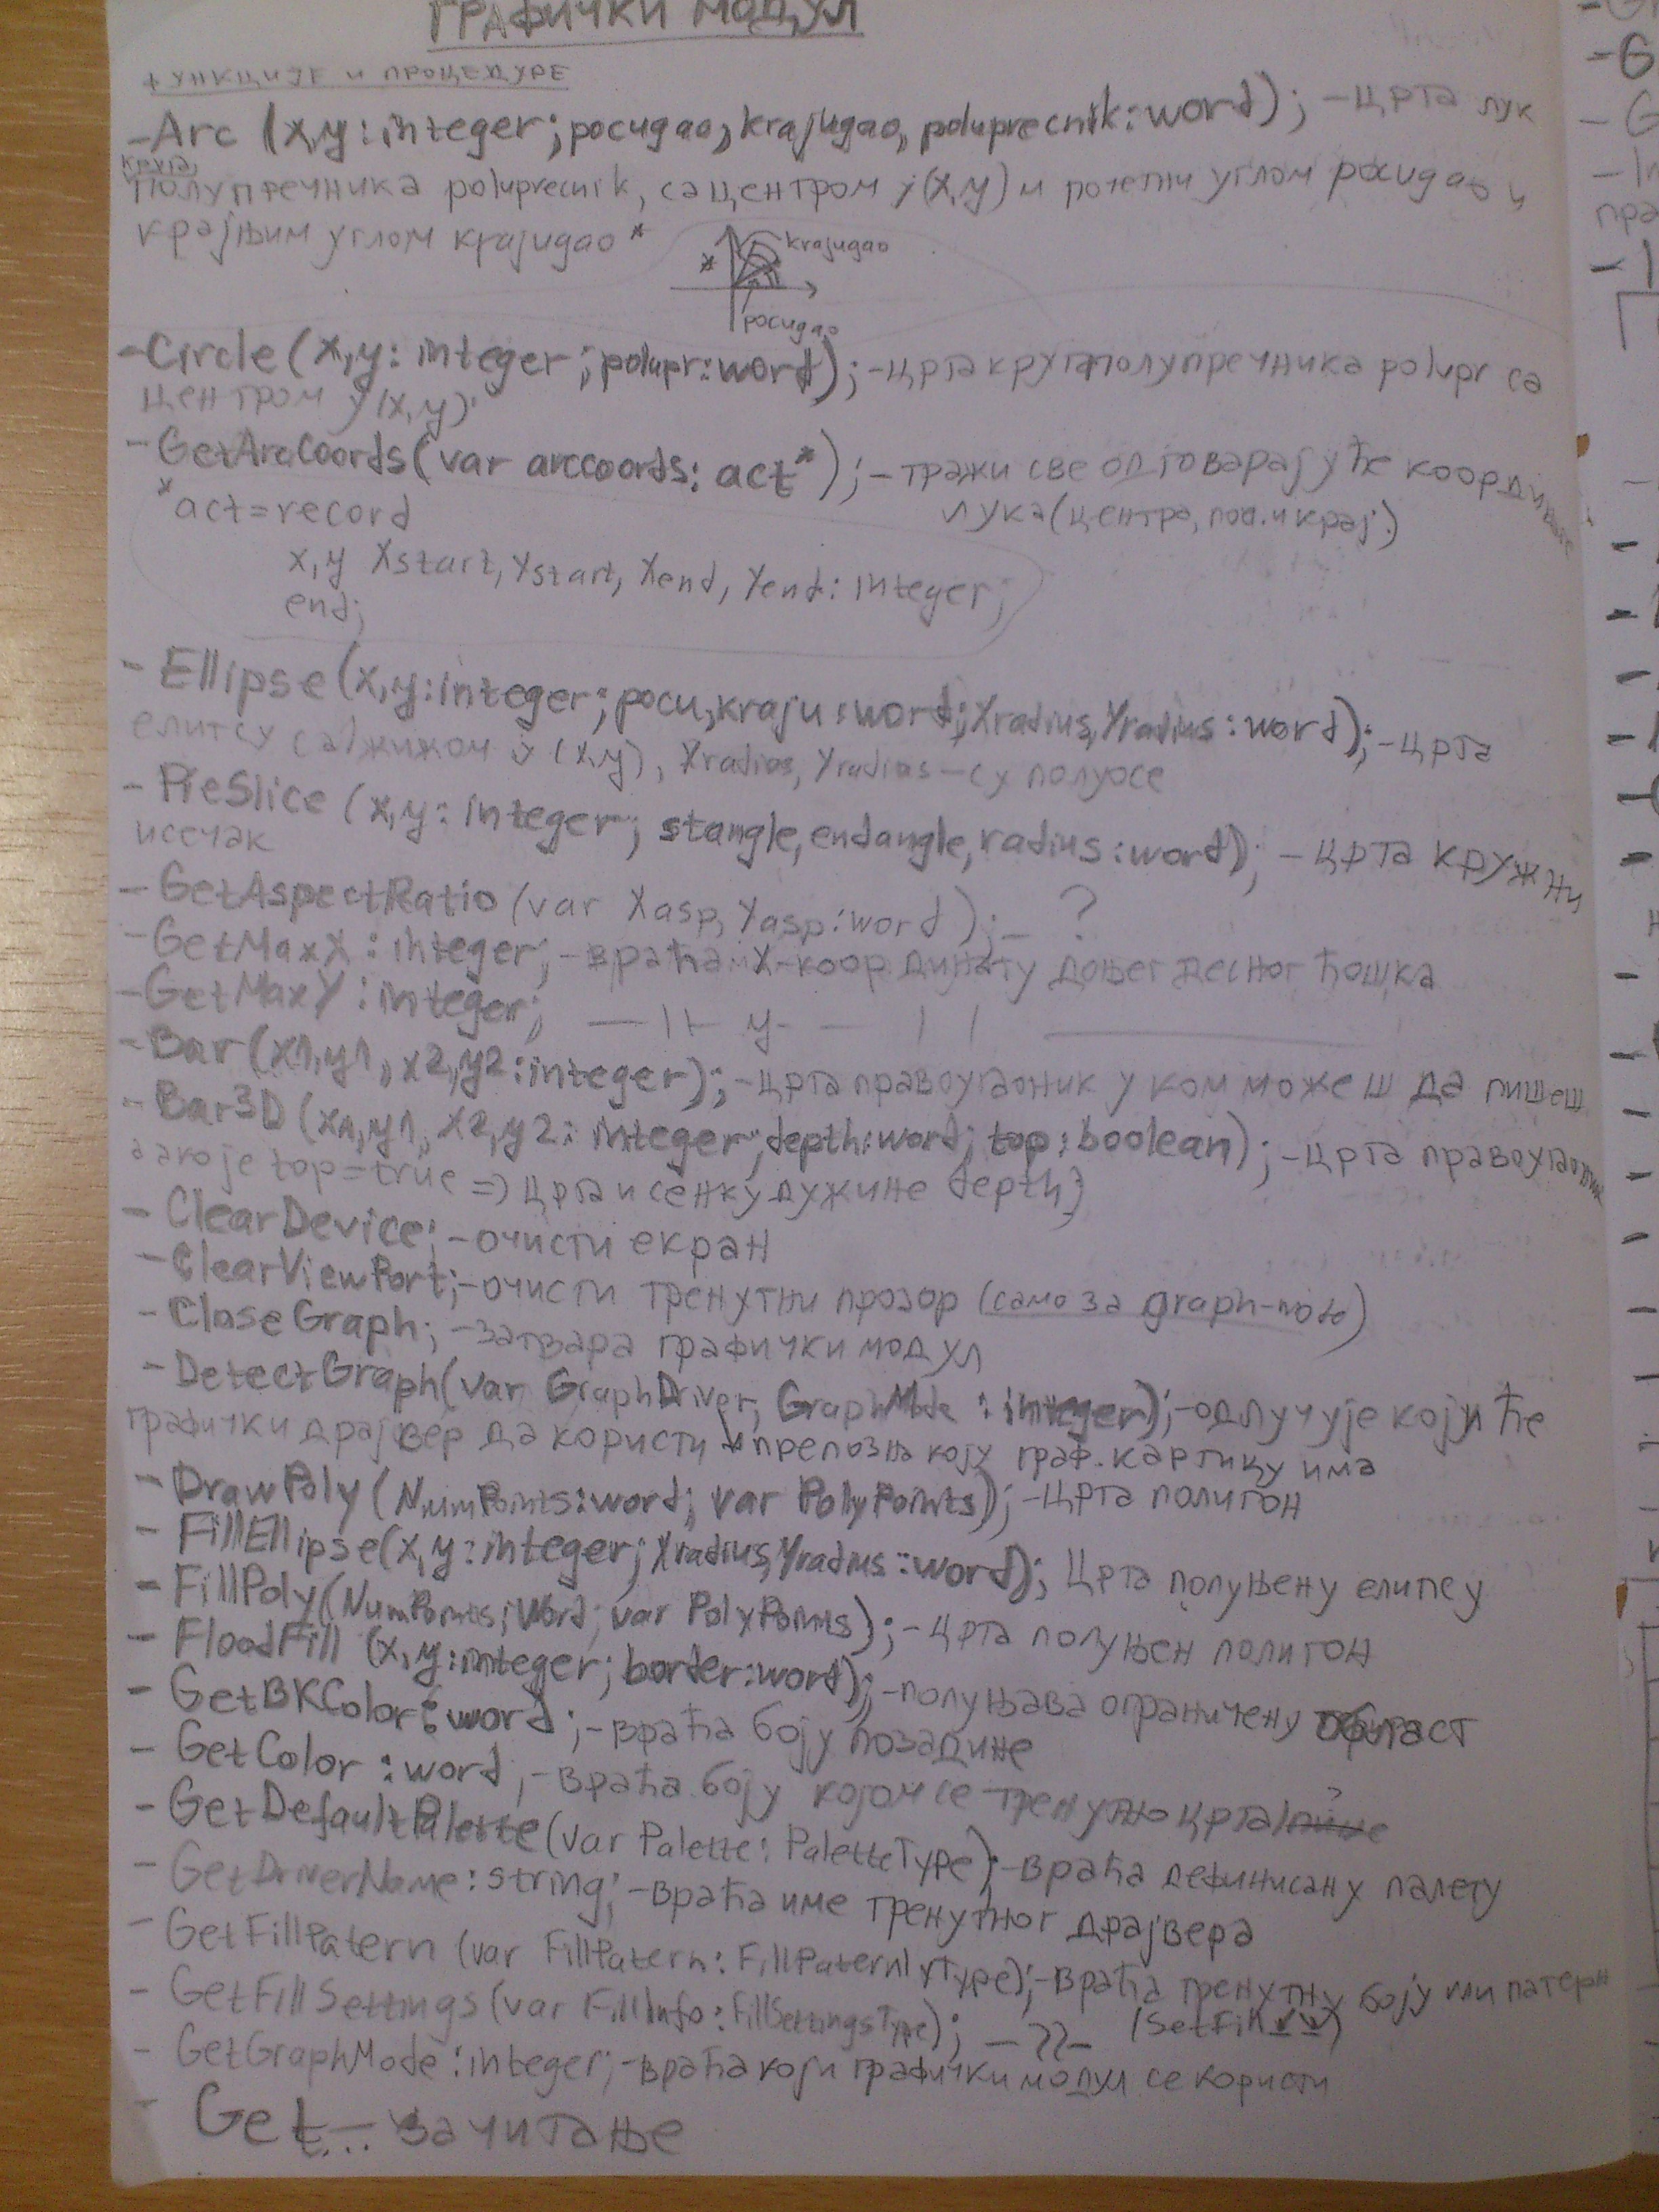 ГРАФИЧКИ МОДУЛ
ФУНКЦИЈЕ И ПРОЦЕДУРЕ
-Arc (x,y:integer;pocugao,krajugao,poluprecnik:word); -црта лук
круга
полупречника poluprecnik, са центром у (x,y) и почетни углом pocugao и
крајњим углом krajugao *
krajugao
*
pocugao
-Circle (x,y: integer; polupr:word); -црта круг полупречника polupr са
центром у (x,y)
-GetArcCoords(var arccoords: act*); -тражи све одговарајуће
*act=record
лука (центра, поч. и крај.)
x,y Xstart, Ystart, Xend, Yend: integer;
end;
- Ellipse (x,y:integer; pocu,kraju:word; Xradius,Yradius:word); -црта
елипсу са жижом у (x,y), Xradius, Yradius-су полуосе
- PieSlice (x,y: integer; stangle,endangle,radius:word); -црта кружни
исечак
- GetAspectRatio (var Xasp, Yasp:word); - ?
-GetMaxX : integer; -враћа X-координату доњег десног ћошка
-GetMaxY : integer; —||— y- — | |
-Bar (x1,y1, x2,y2:integer); -црта правоугаоник у ком можеш да пишеш
- Bar3D (x1,y1, x2,y2: integer; depth:word; top:boolean); -црта правоугаоник
а ако је top=true => црта и сенку дужине depth}
- ClearDevice; -очисти екран
-ClearViewPort; -очисти тренутни прозор (само за graph-mode)
- CloseGraph; -затвара графички модул
- DetectGraph(var GraphDriver, GraphMode : integer); -одлучује који ће
графички драјвер да користи и препозна коју граф. картицу има
- DrawPoly (NumPoints:word; var PolyPoints); -црта полигон
- FillEllipse(x,y:integer; Xradius,Yradius:word); Црта попуњену елипсу
- FillPoly(NumPoints:Word; var PolyPoints); -црта попуњен полигон
- FloodFill (x,y:integer; border:word); -попуњава ограничену област
- GetBKColor: word; -враћа боју позадине
- GetColor :word; -враћа боју којом се тренутно црта
- GetDefaultPalette (var Palette: PaletteType); -враћа дефинисану палету
- GetDriverName: string; -враћа име тренутног драјвера
- GetFillPatern (var FillPatern: FillPaternType); -враћа тренутну боју или патерн
- GetFillSettings (var FillInfo: FillSettingsType); -??- (SetFill
- GetGraphMode :integer; -враћа који графички модул се користи
- Get... за читање